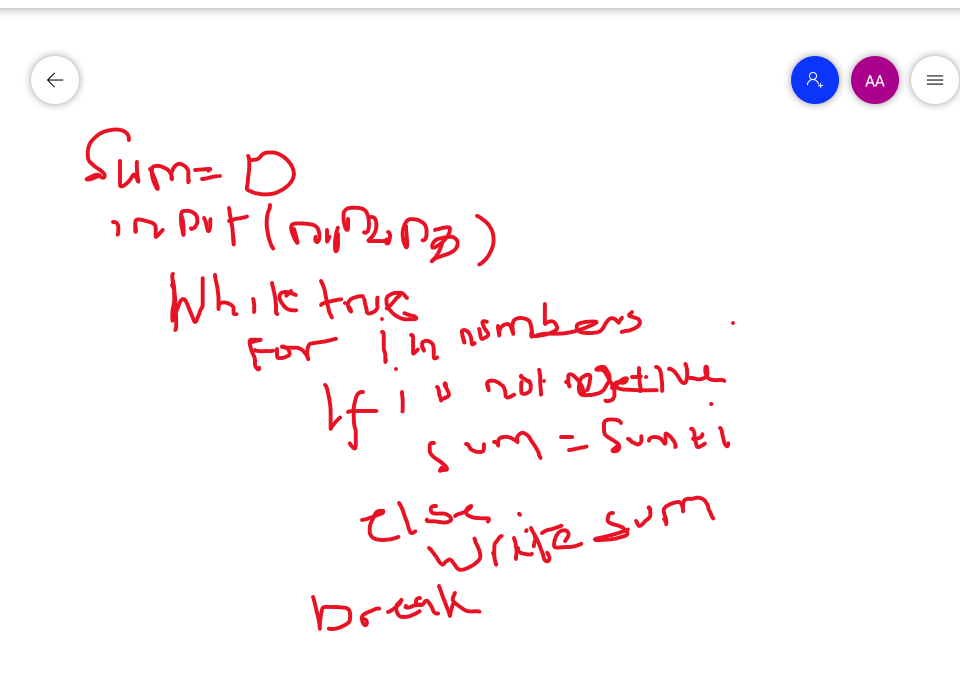 AA
Sum = 0
input(n1,n2,n3)
While true
For i in numbers
If i is not negetive
sum = Sum + i
else
write sum
break